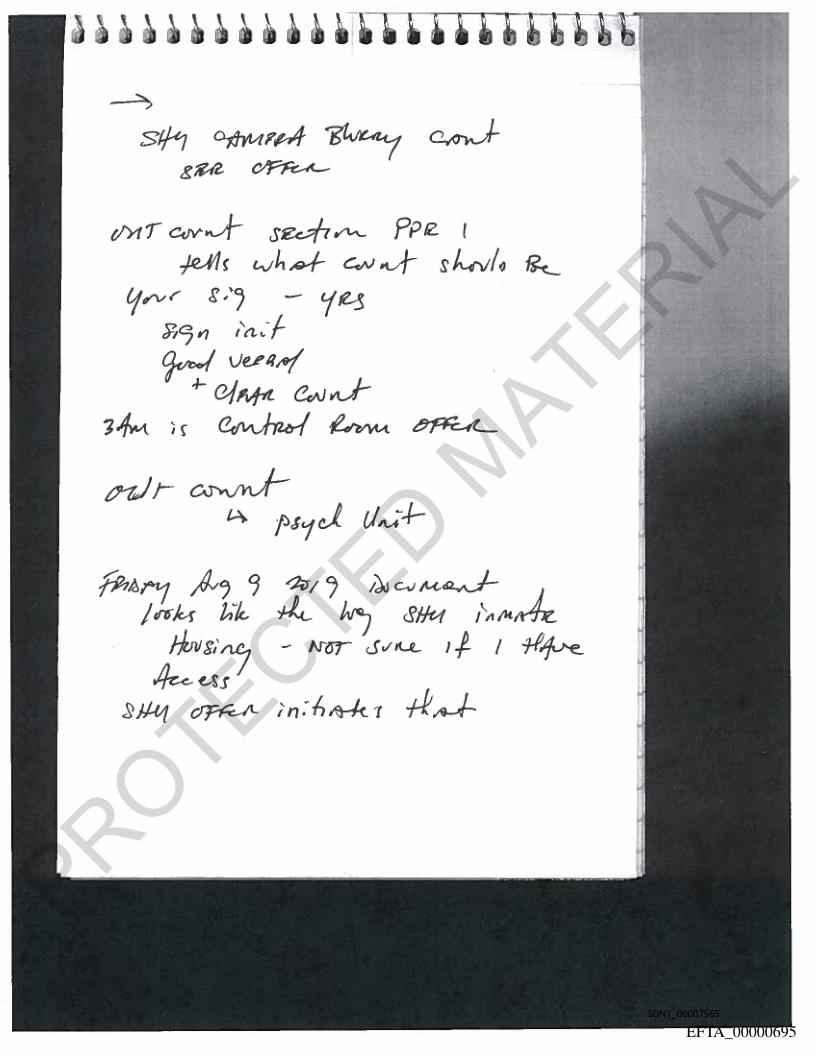 →
SHU CAMERA Blurry count
SEE OFFCR
UNIT count section PPR 1
tells what count should Be
your sig - yes
sign init
Good verbal
+ Clear Count
3 Am is Control Room OFFCR
count
↳ psych Unit
FRIDAY Aug 9 2019 Document
looks lik the way SHU inmate
Housing - NOT sure if I Have
Access
SHU OFFCR initiates that
PROTECTED MATERIAL
SDNY_00007565
EFTA_00000695